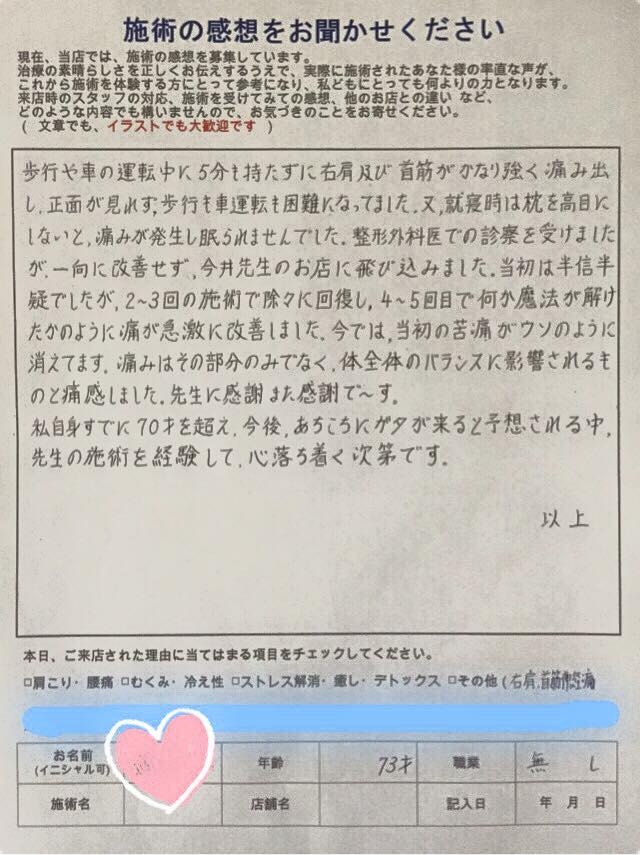 施術の感想をお聞かせください
現在、当店では、施術の感想を募集しています。
治療の素晴らしさを正しくお伝えするうえで、実際に施術されたあなた様の率直な声が、
これから施術を体験する方にとって参考になり、私どもにとっても何よりの力となります。
来店時のスタッフの対応、施術を受けてみての感想、他のお店との違い など、
どのような内容でも構いませんので、お気づきのことをお寄せください。
( 文章でも、イラストでも大歓迎です )
歩行や車の運転中に5分も持たずに右肩及び首筋がかなり強く痛み出
し、正面が見れず、歩行も車運転も困難になってました。又、就寝時は枕を高目に
しないと、痛みが発生し眠られませんでした。整形外科医での診察を受けました
が、一向に改善せず、今井先生のお店に飛び込みました。当初は半信半
疑でしたが、2~3回の施術で除々に回復し、4~5回目で何か魔法が解け
たかのように痛が急激に改善しました。今では、当初の苦痛がウソのように
消えてます。痛みはその部分のみでなく、体全体のバランスに影響されるも
のと痛感しました。先生に感謝また感謝で~す。
私自身すでに70才を超え、今後、あちこちにガタが来ると予想される中、
先生の施術を経験して、心落ち着く次第です。
以上
本日、ご来店された理由に当てはまる項目をチェックしてください。
□肩こり・腰痛 □むくみ・冷え性 □ストレス解消・癒し・デトックス □その他 (右肩、首筋
お名前 年齢 73才 職業 無し
(イニシャル可)
施術名 店舗名 記入日 年 月 日